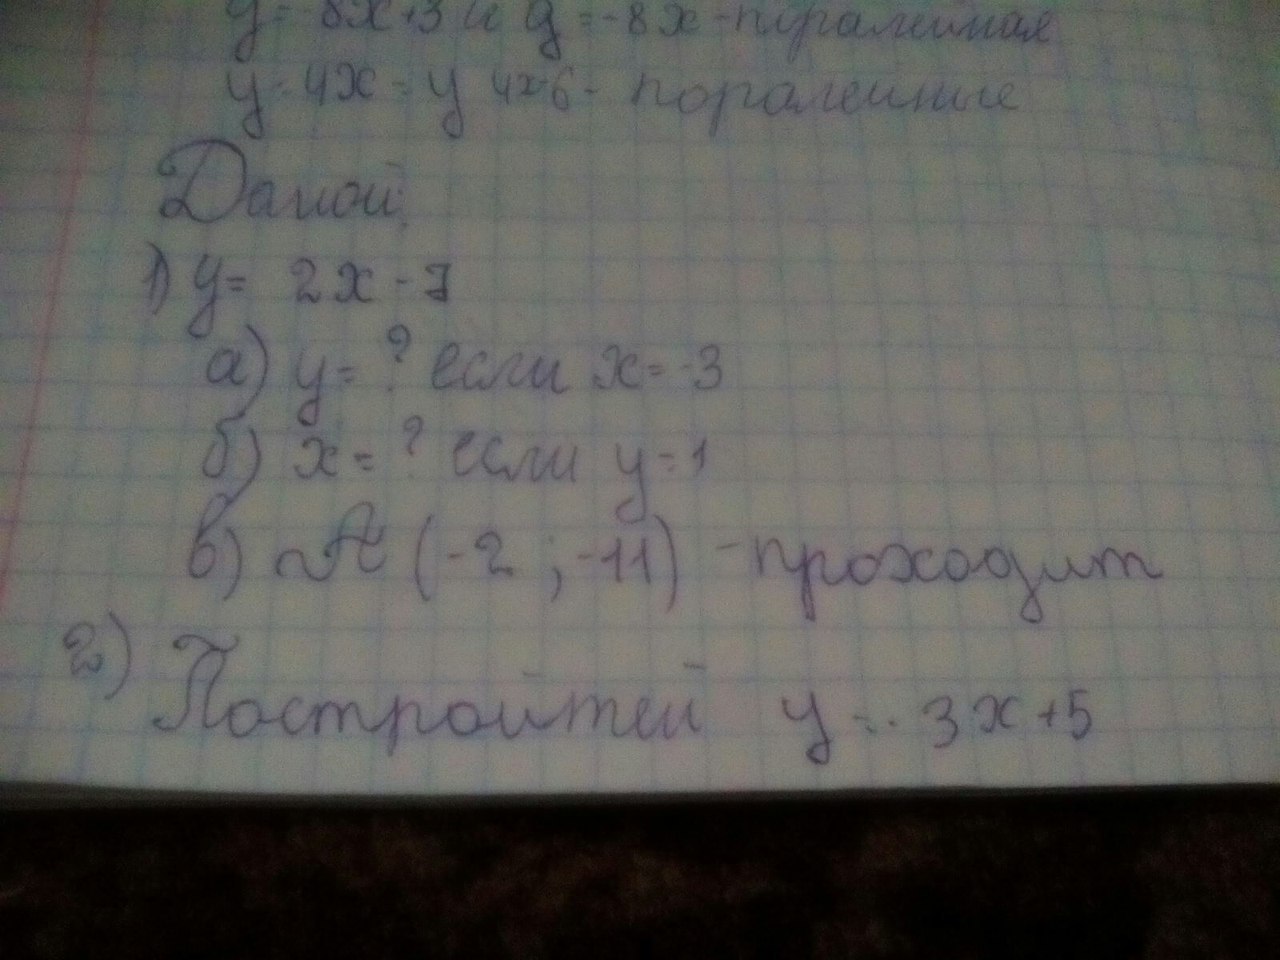 y = -8x + 3 и y = -8x - паралейная
y = 4x = y 4x-6 - поралейние
Дамой:
1) y = 2x - 7
а) y = ? если x = -3
б) x = ? если y = 1
в) А (-2 ; -11) - проходит
2) Постройтей y = - 3x + 5